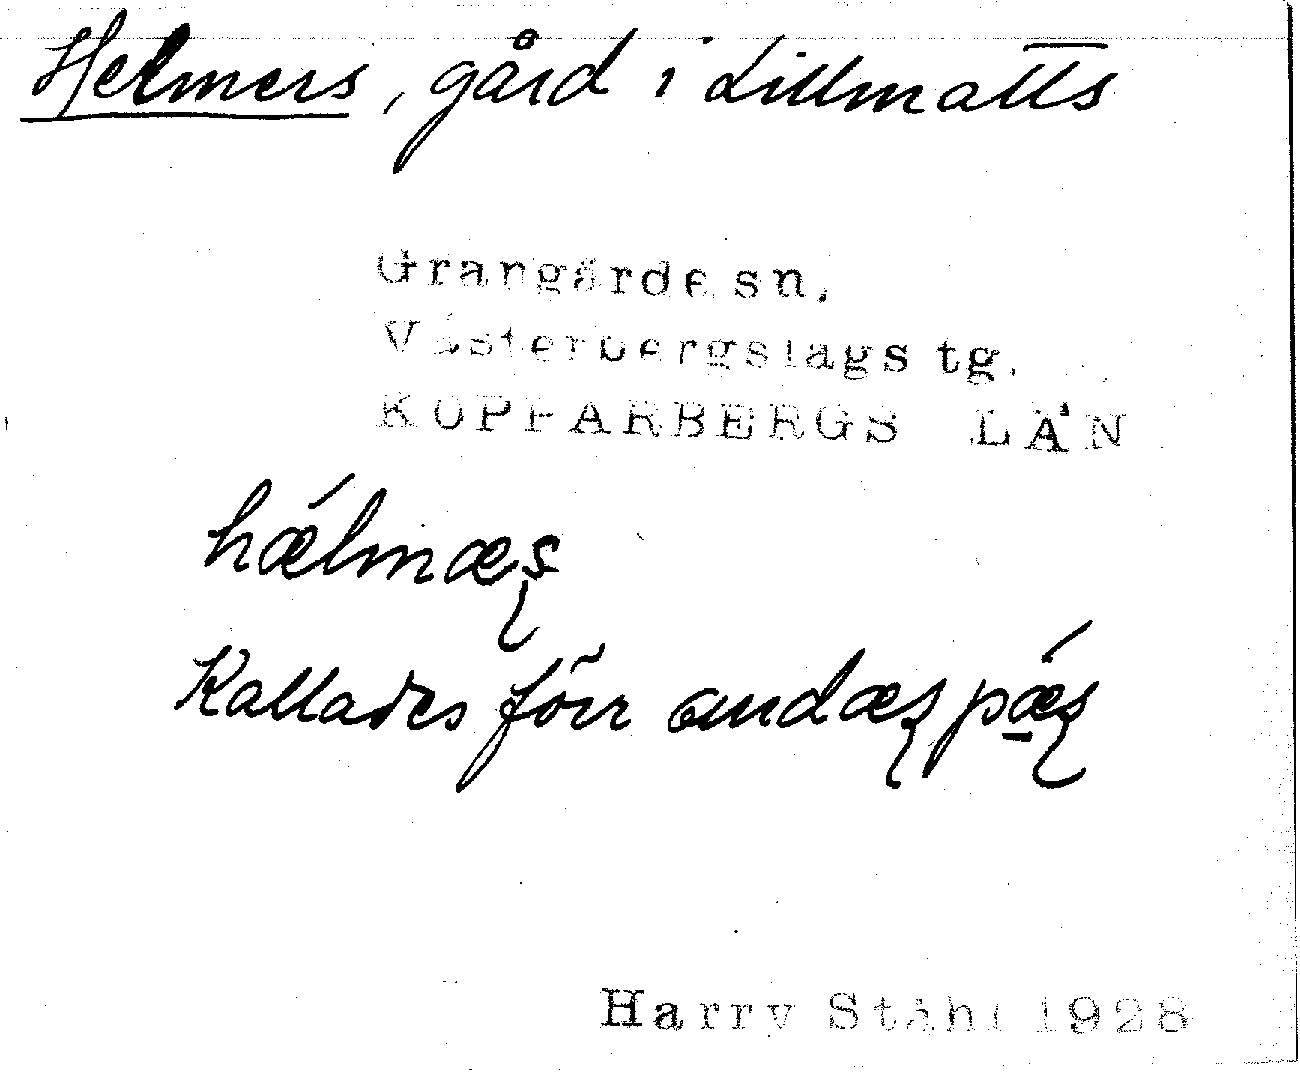 Helmers, gård i Lillmatts
Grangärde sn.
Västerbergslags tg.
KOPPARBERGS LÄN
hǽlmæʂ
Kallades förr andæʂpǽʂ
Harry Ståhl 1928